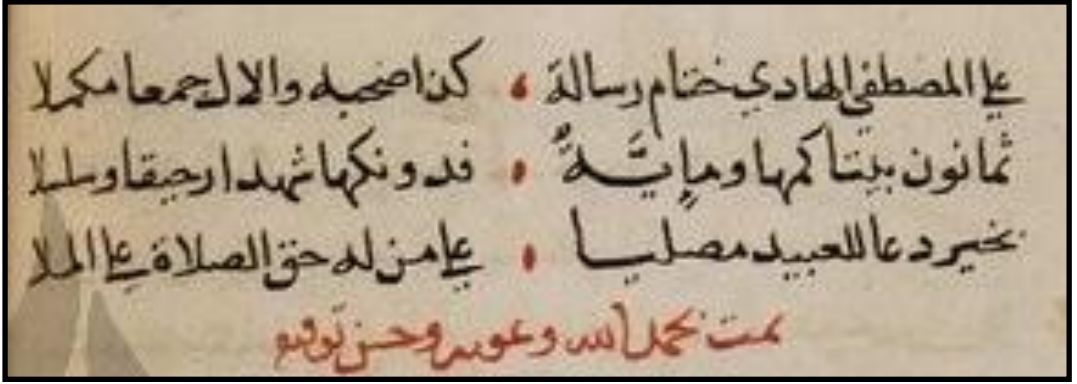 علي المصطفي الهادي ختام رسالة ، كذا صحبه والال جمعا مكملا
ثمانون بيتا كمها ومايَّةٌ ، فدونكها شهدا رحيقا وسلسلا
بخير دعا للعبيد مصليا ، علي من له حق الصلاة علي الملا
تمت بحمد الله وعونه وحسن توفيقه